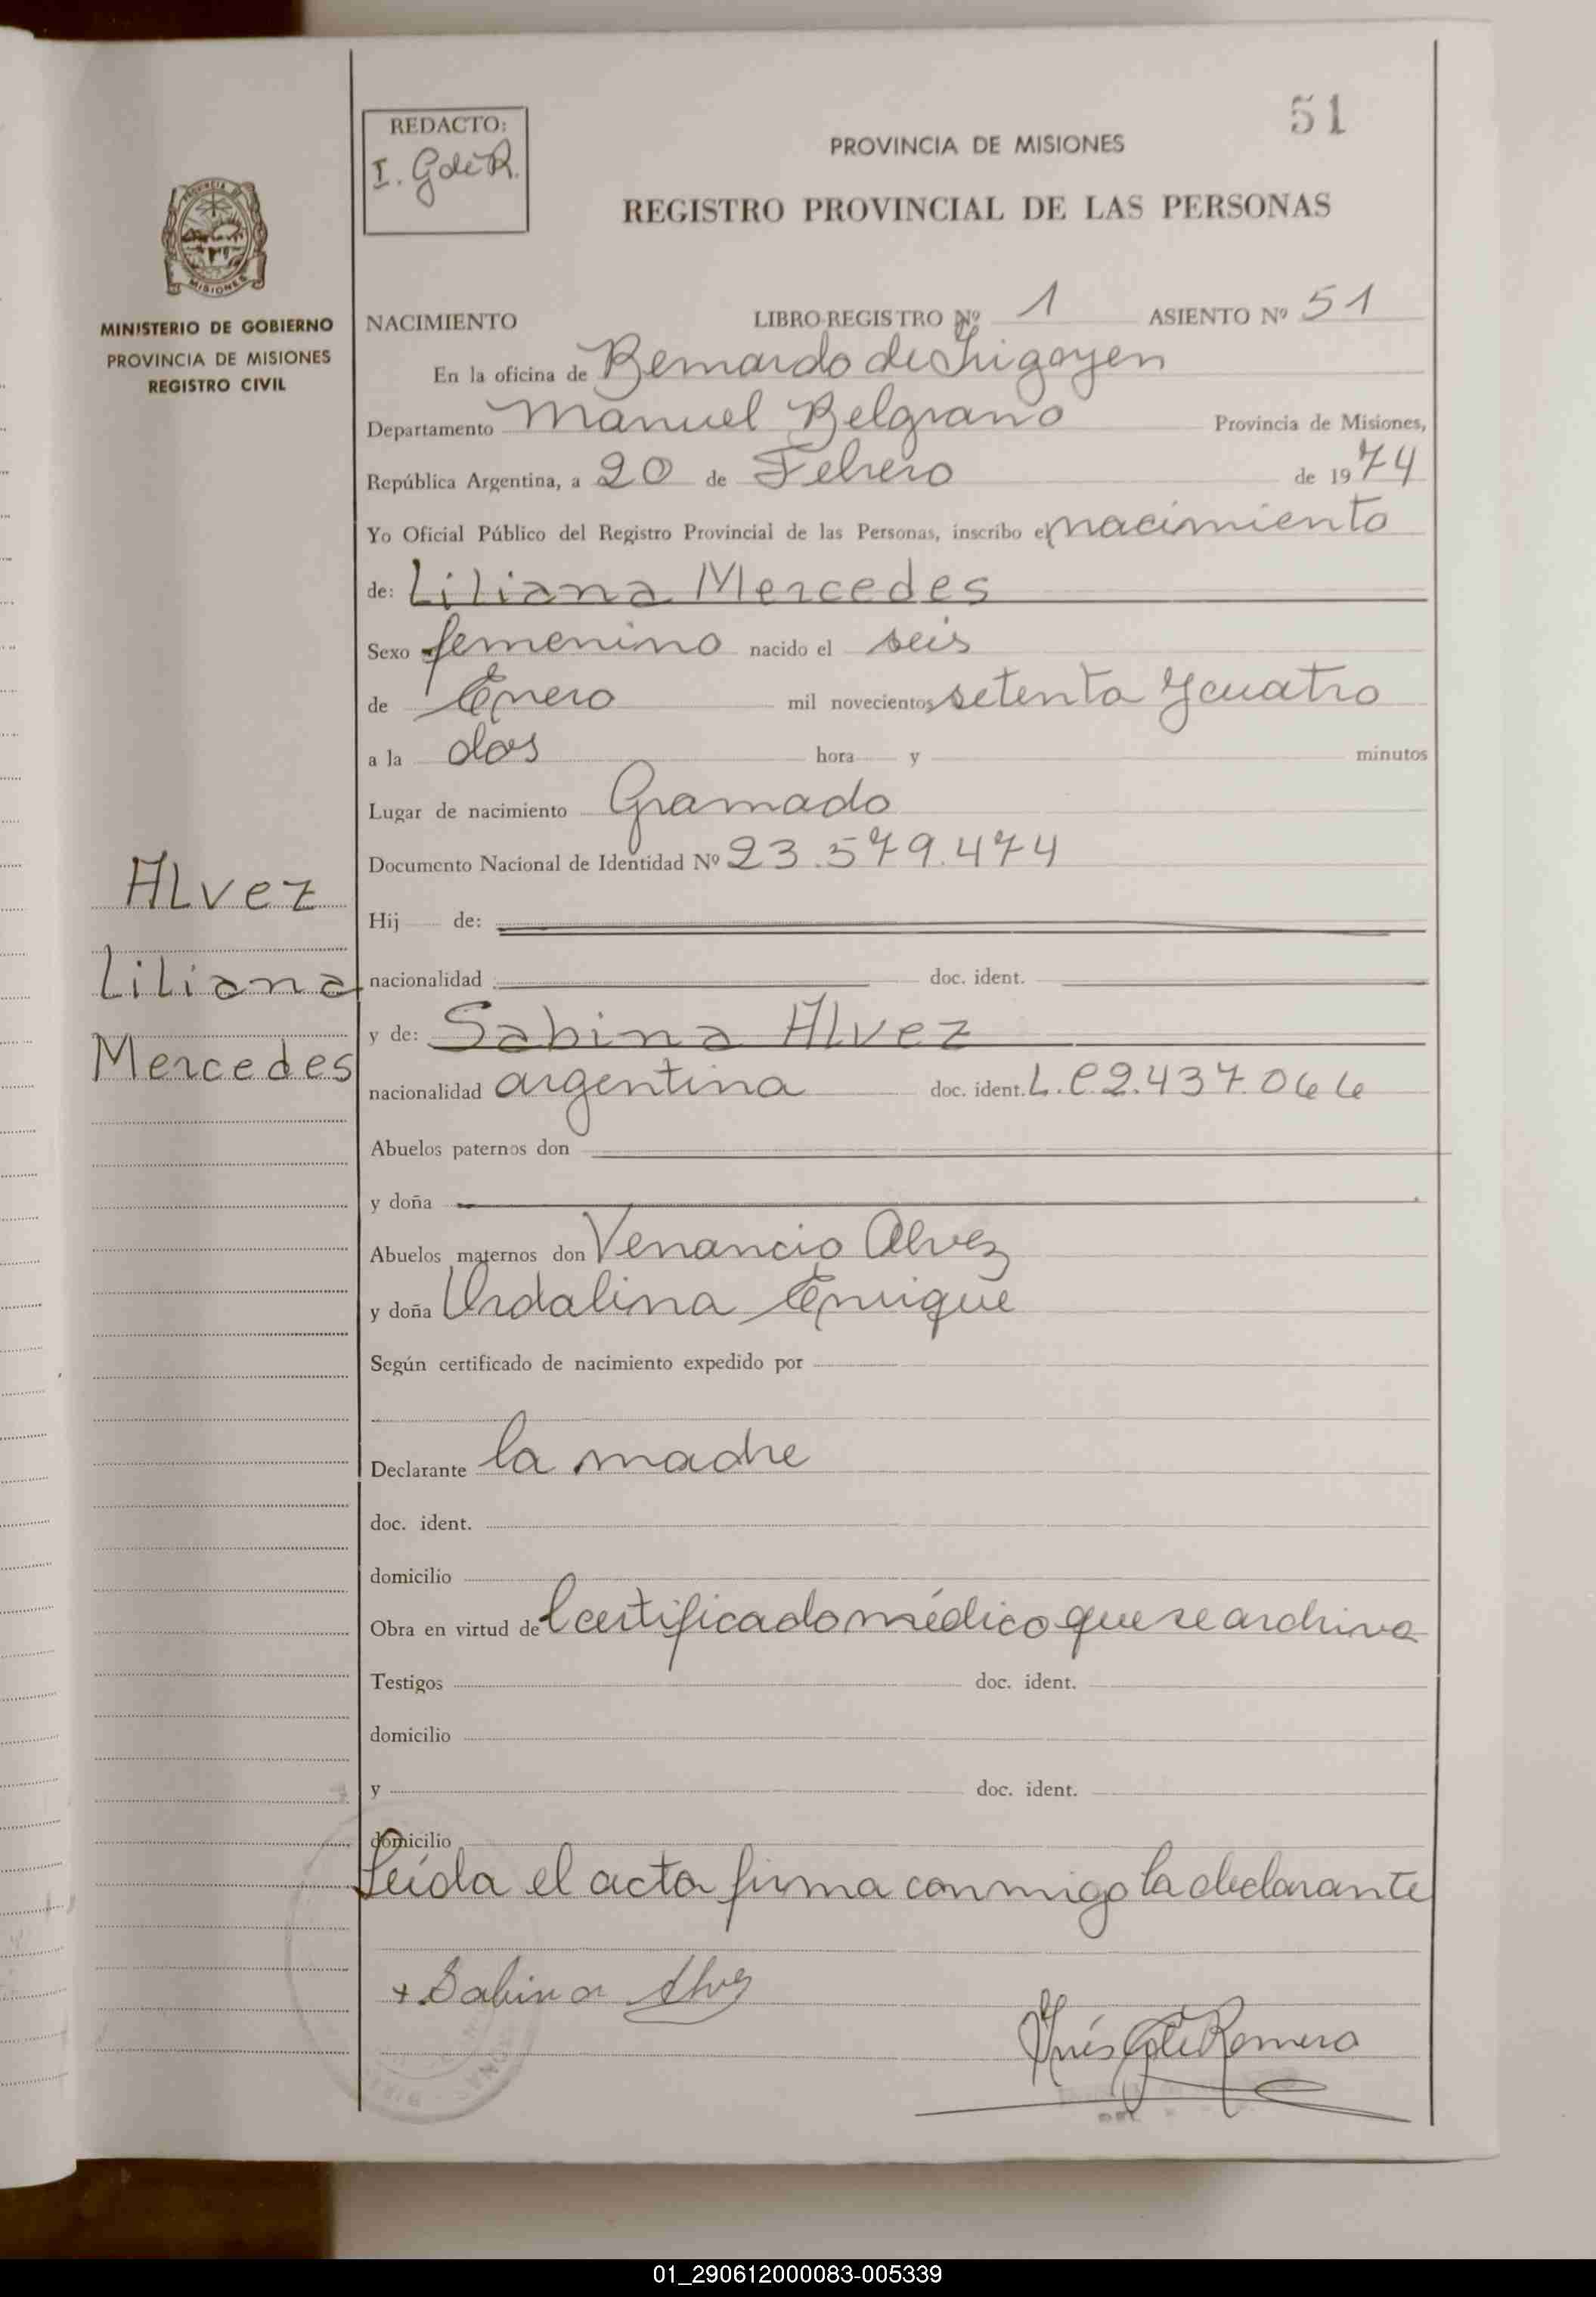 51
REDACTO:
I. G de R.
PROVINCIA DE MISIONES
REGISTRO PROVINCIAL DE LAS PERSONAS
MISIONES
MINISTERIO DE GOBIERNO
PROVINCIA DE MISIONES
REGISTRO CIVIL
NACIMIENTO LIBRO REGISTRO Nº 1 ASIENTO Nº 51
En la oficina de Bernardo de Irigoyen
Departamento Manuel Belgrano Provincia de Misiones,
República Argentina, a 20 de Febrero de 1974
Yo Oficial Público del Registro Provincial de las Personas, inscribo el nacimiento
de: Liliana Mercedes
Sexo femenino nacido el seis
de Enero mil novecientos setenta y cuatro
a la dos hora y minutos
Lugar de nacimiento Gramado
Documento Nacional de Identidad Nº 23.579.474
Alvez
Liliana
Mercedes
Hij de:
nacionalidad doc. ident.
y de: Sabina Alvez
nacionalidad argentina doc. ident. L.C 2.437.066
Abuelos paternos don
y doña
Abuelos maternos don Venancio Alvez
y doña Ordalina Enrique
Según certificado de nacimiento expedido por
Declarante la madre
doc. ident.
domicilio
Obra en virtud del certificado médico que se archiva
Testigos doc. ident.
domicilio
y doc. ident.
domicilio
Leída el acta firma conmigo la declarante
+ Sabina Alvez
Inés G de Romero
01_290612000083-005339